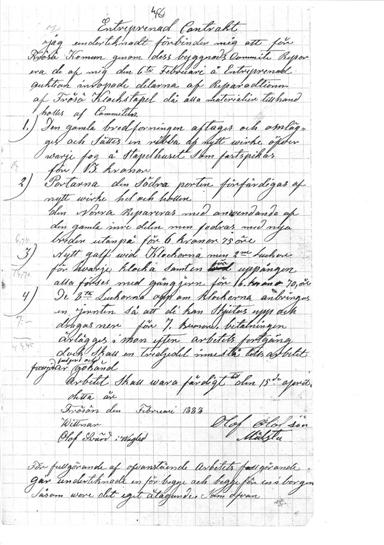 Entreprenad Contrakt
jag undertecknadt förbinder mig att för
Frösö Komun genom dess byggnads Committe Repar
era de af mig den 6te Februari å Entreprenad
auktion inropade delarna af Reparationen
af Frösö Klockstapel då alla materialier tillhand
hålles af Committen
1) Den gamla bredfordningen aftages och omläg-
ges och sättes en ribba af nytt wirke öfver
warje fog å Stapelhuset som fastspikas
för 13 kronor
2) Portarna den Södra porten förfärdigas af
nytt wirke hel och hållen
den Norra Repareras med anwendande af
den gamla inre delen men fodras med nya
bräder utanpå för 6 kronor 75 öre
3) Nytt golf wid Klockorna men 2ne Luckor
för hwarje klocka samt en för uppgången
alla förses med gångjern för 16 kronor 70 öre
4) De 8ta Luckorna uppom klockorna anbringas
så att di kan skjutas upp och
dragas ner för 7 kronor, betalningen
erlägges mon efter arbetets fortgång
dock skall en tredjedel innestå tills arbetet
är godkänd
Arbetet skall wara färdigt till den 15de april
detta år
Frösön den Februari 1883
Wittnar
Olof Olof son
Mälsta
Olof Swärd i Wagled
För fullgörande af ofwanstående Arbetets fullgörande
går undertecknade en för begge och begge för en i borgen
såsom wore det eget åtagande Som ofvan